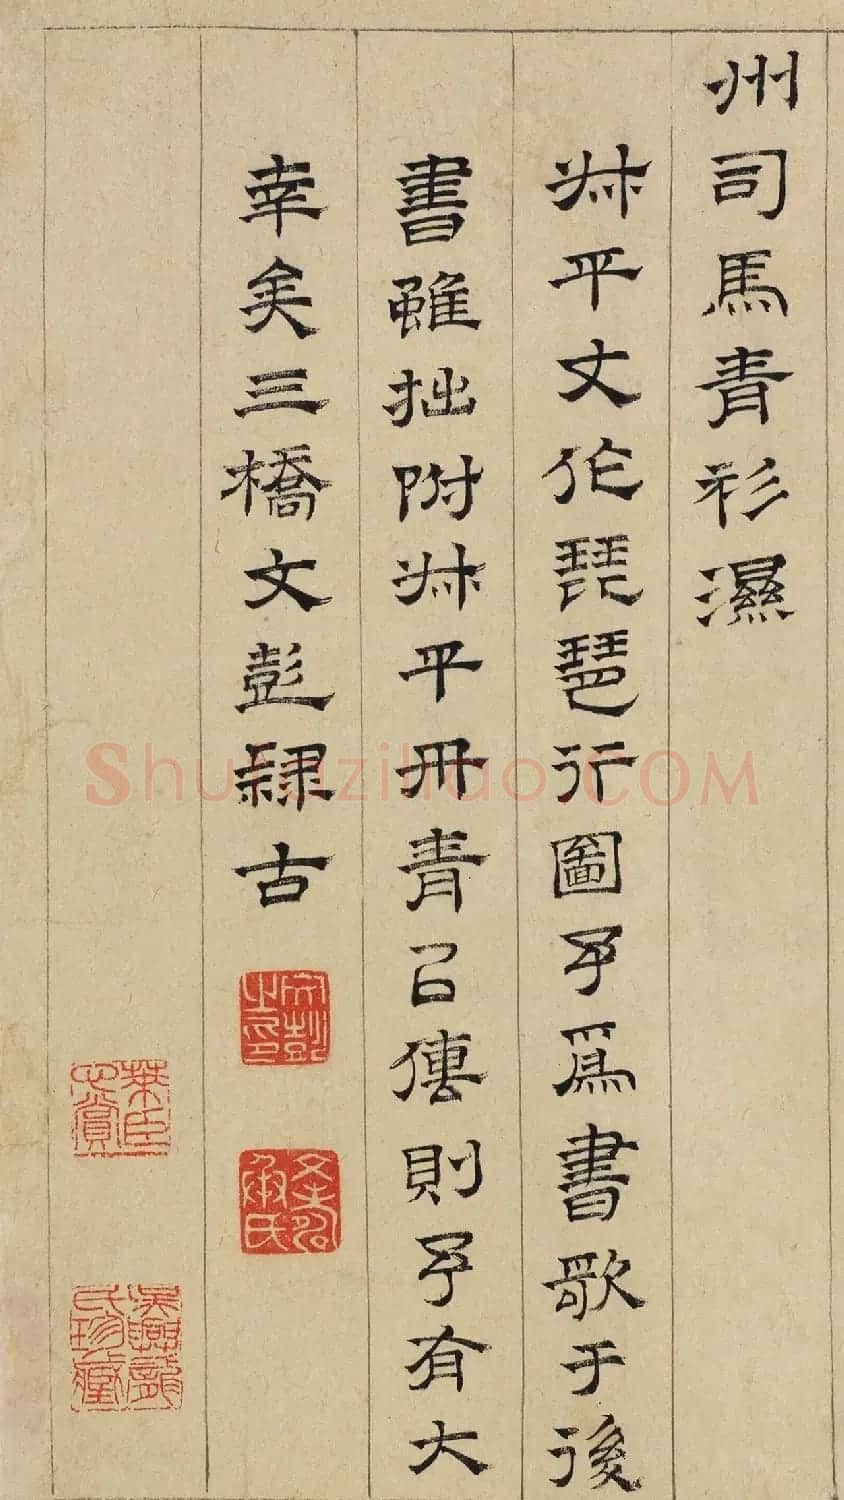 州司馬青衫濕
叔平丈作琵琶行圖予爲書歌于後
書雖拙附叔平丹青以傳則予有大
幸矣三橋文彭隸古
文彭之印
文壽承氏
萊臣心賞
吳興龐氏珍藏
Shufaziliao.COM